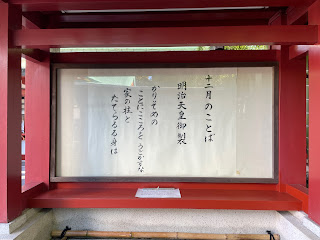 十二月のことば
明治天皇御製
かりそめの
ことにこころを うごかすな
家の柱と
たてらるる身は